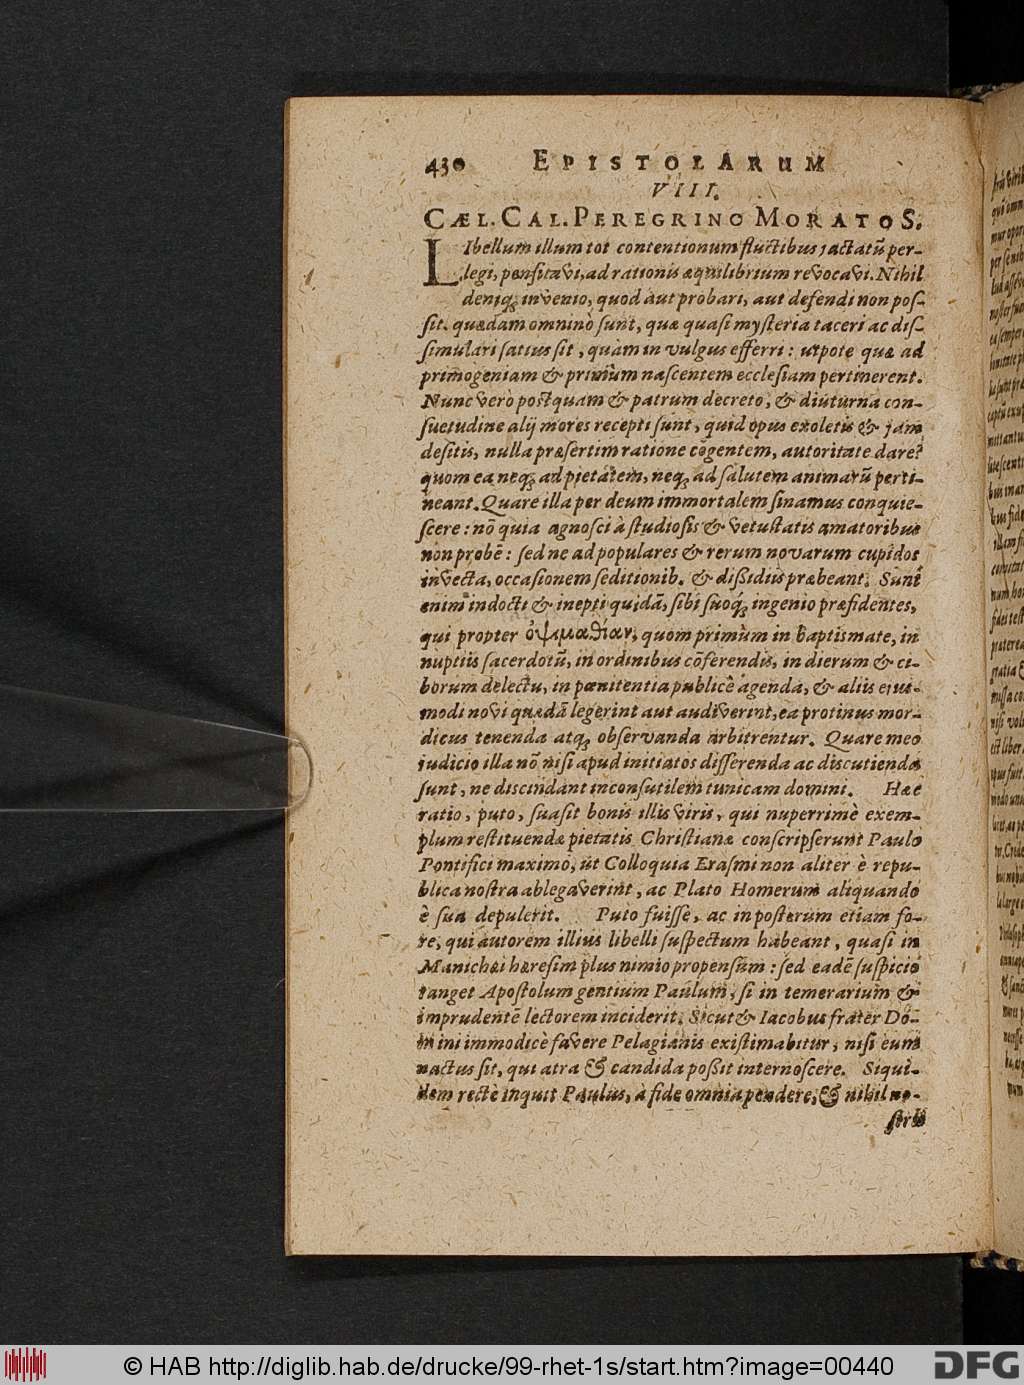 430 EPISTOLARUM
VIII.
CÆL. CAL. PEREGRINO MORATO S.
LIbellum illum tot contentionum fluctibus jactatũ per-
legi, pensitavi, ad rationis æquilibrium revocavi. Nihil
deniq; invenio, quod aut probari, aut defendi non pos-
sit. quædam omninò sunt, quæ quasi mysteria taceri ac dis-
simulari satius sit, quàm in vulgus efferri: utpote quæ ad
primogeniam & primùm nascentem ecclesiam pertinerent.
Nunc verò postquam & patrum decreto, & diuturna con-
suetudine alij mores recepti sunt, quid opus exoletis & jam
desitis, nulla præsertim ratione cogentem, autoritate dare?
quom ea neq; ad pietatem, neq; ad salutem animarũ perti-
neant. Quare illa per deum immortalem sinamus conquie-
scere: nõ quia agnosci à studiosis & vetustatis amatoribus
non probẽ: sed ne ad populares & rerum novarum cupidos
invecta, occasionem seditionib. & dissidiis præbeant. Sunt
enim indocti & inepti quidã, sibi suoq; ingenio præfidentes,
qui propter ὀψιμαθίαν, quom primùm in baptismate, in
nuptiis sacerdotũ, in ordinibus cõferendis, in dierum & ci-
borum delectu, in pœnitentia publicè agenda, & aliis ejus-
modi novi quædã legerint aut audiverint, ea protinus mor-
dicus tenenda atq; observanda arbitrentur. Quare meo
judicio illa nõ nisi apud initiatos disserenda ac discutienda
sunt, ne discindant inconsutilem tunicam domini. Hæc
ratio, puto, suasit bonis illis viris, qui nuperrimè exem-
plum restituendæ pietatis Christianæ conscripserunt Paulo
Pontifici maximo, ut Colloquia Erasmi non aliter è repu-
blica nostra ablegaverint, ac Plato Homerum aliquando
è sua depulerit. Puto fuisse, ac in posterum etiam fo-
re, qui autorem illius libelli suspectum habeant, quasi in
Manichæi hæresim plus nimio propensum: sed eadẽ suspicio
tanget Apostolum gentium Paulum, si in temerarium &
imprudentẽ lectorem inciderit. Sicut & Iacobus frater Do-
mini immodicè favere Pelagianis existimabitur, nisi eum
nactus sit, qui atra & candida possit internoscere. Siqui-
dem rectè inquit Paulus, à fide omnia pendere, & nihil no-
stris
© HAB http://diglib.hab.de/drucke/99-rhet-1s/start.htm?image=00440
DFG